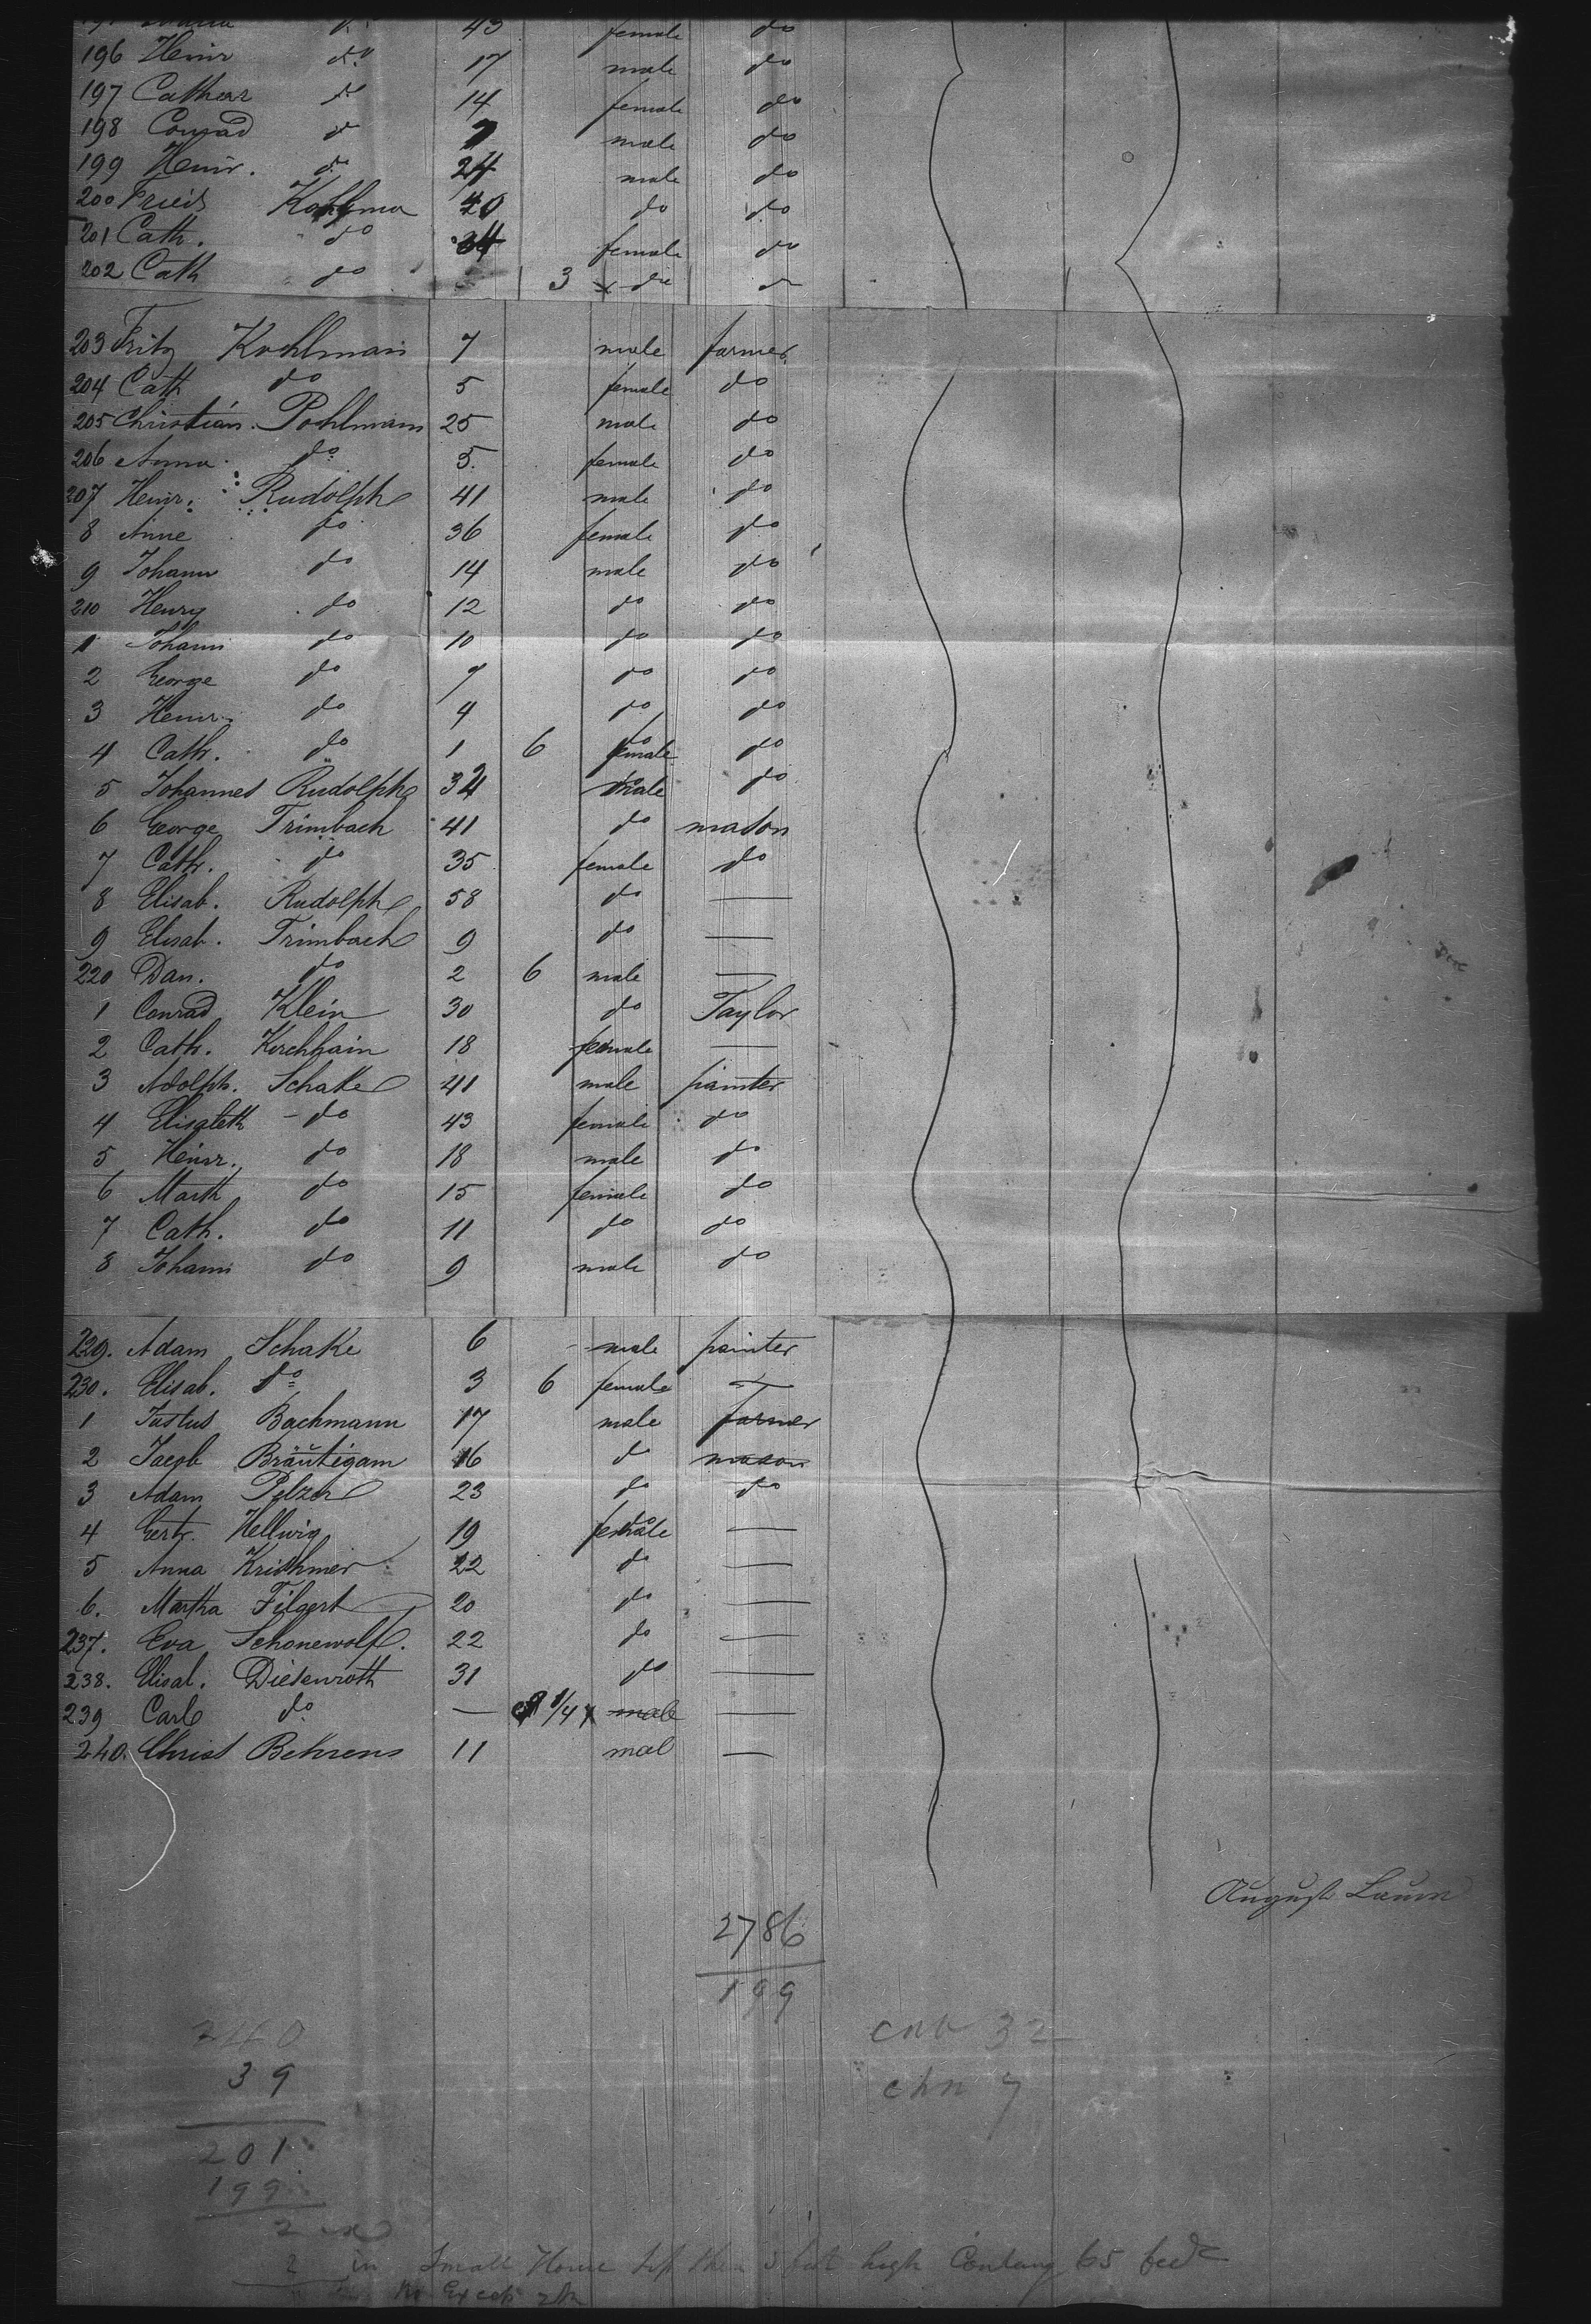 43 female do
196 Heinr do 17 male do
197 Cathar do 14 female do
198 Conrad do 7 male do
199 Heinr. do 24 male do
200 Fried 40 do do
201 Cath. do 34 female do
202 Cath do 3 do do
203 Fritz Kohlmann 7 male farmer
204 Cath do 5 female do
205 Christian Pohlmann 25 male do
206 Anna do 5. female do
207 Heinr. Rudolph 41 male do
8 Anne do 36 female do
9 Johann do 14 male do
210 Henry do 12 do do
1 Johann do 10 do do
2 George do 7 do do
3 Heinr. do 4 do do
4 Cath. do 1 6 female do
5 Johannes Rudolph 34 male do
6 George Trimbach 41 do mason
7 Cath. do 35 female do
8 Elisab. Rudolph 58 do —
9 Elisab. Trimbach 9 do —
220 Dan. do 2 6 male —
1 Conrad Klein 30 do Taylor
2 Cath. Kerchhain 18 female —
3 Adolph. Schake 41 male painter
4 Elisabeth do 43 female do
5 Heinr. do 18 male do
6 Marth do 15 female do
7 Cath. do 11 do do
8 Johann do 9 male do
229. Adam Schake 6 male painter
230. Elisab. do 3 6 female —
1 Justus Bachmann 17 male farmer
2 Jacob Bräutigam 16 do mason
3 Adam Pelzer 23 do do
4 Gertr. Hellwig 19 female —
5 Anna 22 do —
6. Martha Filgert 20 do —
237. Eva Schonewolf. 22 do —
238. Elisab. Diesenroth 31 do —
239 Carl do — 1/4 male —
240. Christ Behrens 11 mal —
August Laun
2786
199
240
39
201
199
2
cab 32
chn 7
2 in Small House less then 5 feet high 65 feet